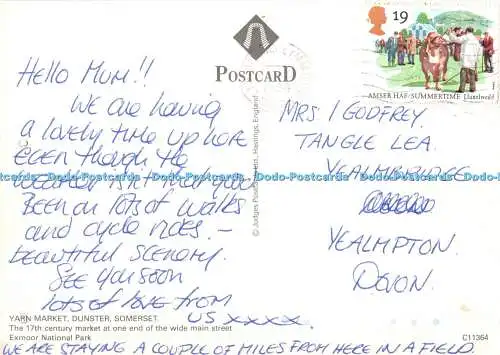 Hello Mum!!
We are having
a lovely time up here
even though the
weather isn't
Been on lots of walks
and cycle rides. –
beautiful scenery.
See you soon
lots of love from
us xxxx.
POSTCARD
© Judges Postcards Hastings, England
19
AMSER HAF/SUMMERTIME Llanelwedd
MRS I GODFREY.
TANGLE LEA.
YEALMBRIDGE
YEALMPTON.
DEVON.
Dodo-Postcards Dodo-Postcards Dodo-Postcards Dodo-Postcards Dodo-Postcards Dodo-Postcards
YARN MARKET, DUNSTER, SOMERSET.
The 17th century market at one end of the wide main street
Exmoor National Park
C11364
WE ARE STAYING A COUPLE OF MILES FROM HERE IN A FIELD.